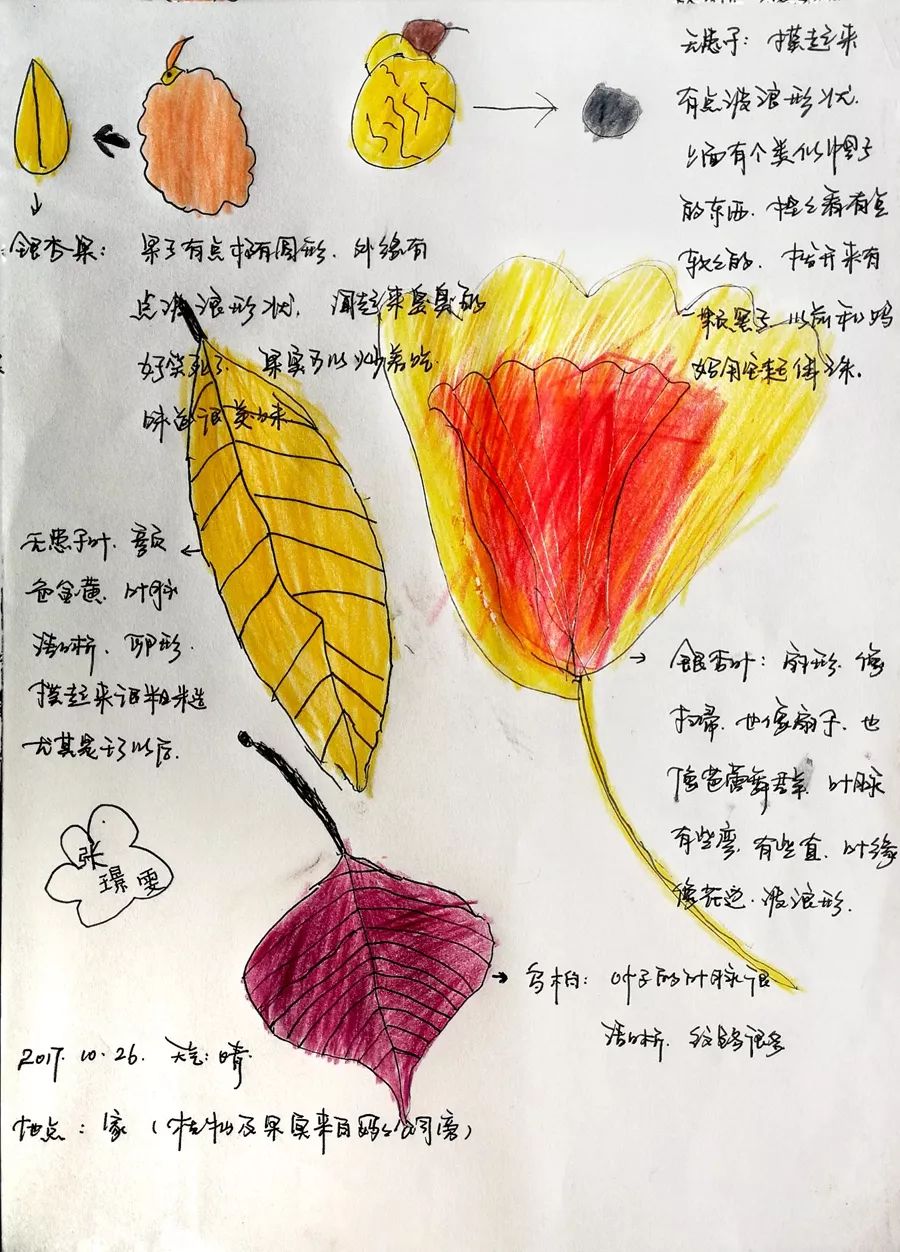 无患子：摸起来
有点波浪形状.
上面有个类似帽子
的东西.捏之看有点
软之的.掐开来有
一颗黑子.以前和妈
妈用它来起佛珠.
银杏果：果子有点椭有圆形.外缘有
点波浪形状.闻起来臭臭的
好笑死了.果实可以炒着吃
味道很美味
无患子叶.音质
色金黄.叶脉
清晰.卵形.
摸起来很粗米造
尤其是干了以后.
银杏叶：扇形.像
扫帚.也像扇子.也
像芭蕾舞裙.叶脉
有些弯.有些直.叶缘
像花边.波浪形.
张
璟雯
乌桕：叶子的叶脉很
清晰.纹路很多
2017.10.26.天气：晴.
地点：家（植物及果实来自妈妈公司旁）